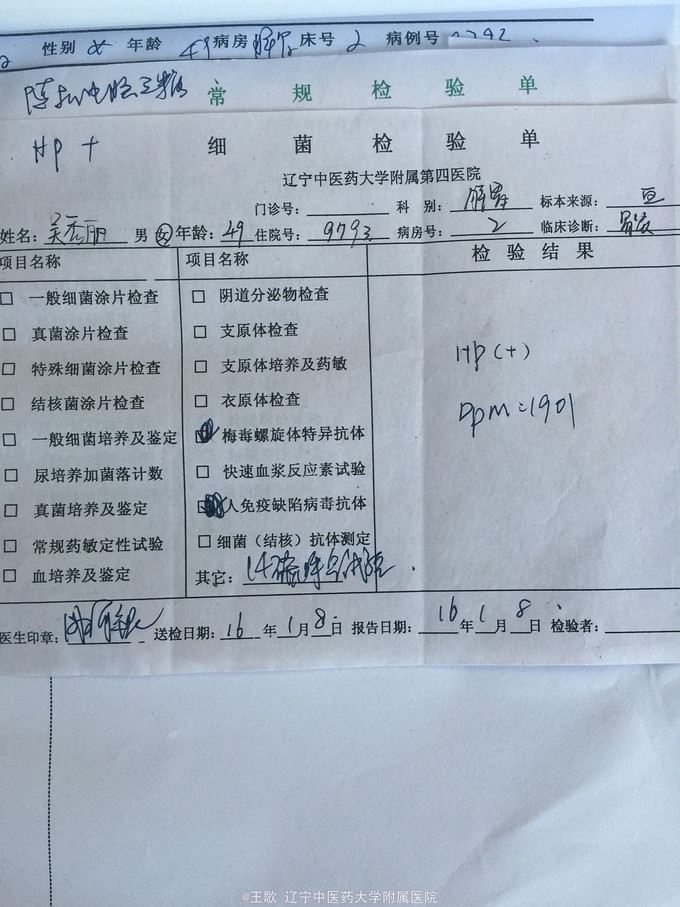 性别 女 年龄 49 病房 床号 2 病例号
常规检验单
Hp +
细菌检验单
辽宁中医药大学附属第四医院
门诊号: 科别: 脾胃 标本来源:
姓名: 吴秀丽 男 女 年龄: 49 住院号: 9793 病房号: 2 临床诊断:
项目名称 项目名称 检验结果
□ 一般细菌涂片检查 □ 阴道分泌物检查
□ 真菌涂片检查 □ 支原体检查
□ 特殊细菌涂片检查 □ 支原体培养及药敏
□ 结核菌涂片检查 □ 衣原体检查
□ 一般细菌培养及鉴定 □ 梅毒螺旋体特异抗体
□ 尿培养加菌落计数 □ 快速血浆反应素试验
□ 真菌培养及鉴定 □ 人免疫缺陷病毒抗体
□ 常规药敏定性试验 □ 细菌（结核）抗体测定
□ 血培养及鉴定 其它: 14碳呼气试验
Hp (+)
Dpm=1901
医生印章: 送检日期: 16 年 1 月 8 日 报告日期: 16 年 1 月 8 日 检验者:
@王歌 辽宁中医药大学附属医院